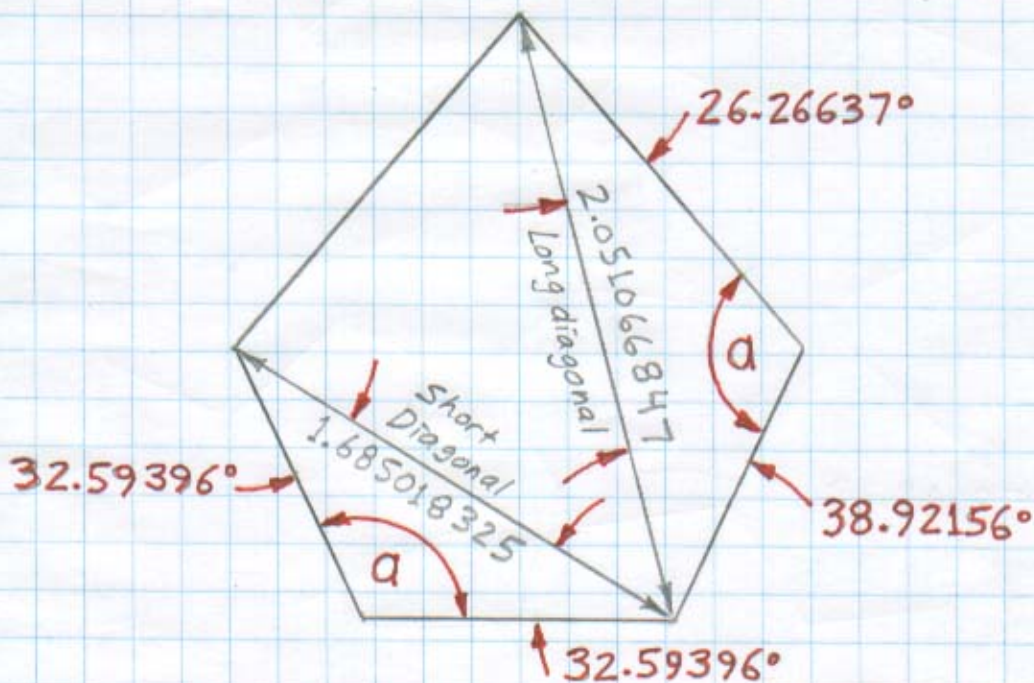 26.26637°
2.051066847
Long diagonal
a
Short
Diagonal
1.685018325
32.59396°
38.92156°
a
32.59396°